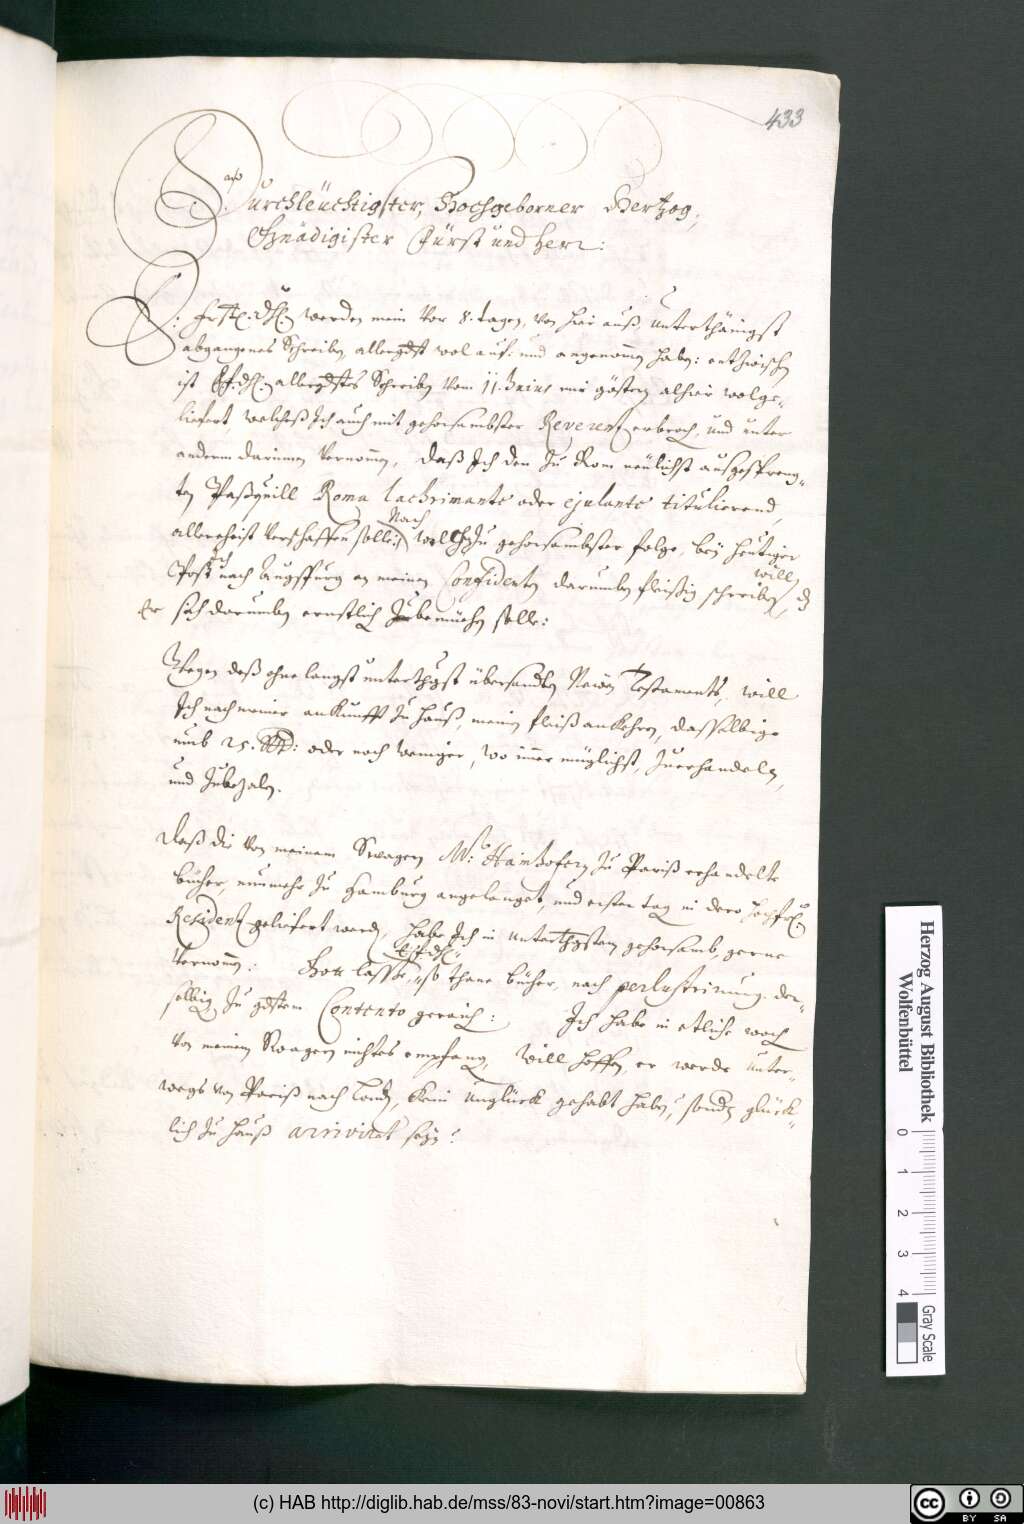 433
Durchleüchtigster, Hochgeborner Hertzog,
Gnädigister Fürst und Herr:
E: Frstl: dhl: werden mein Vor 8. tagen, von hier auß, Unterthänigst
abgangenes Schreiben, allergdst wol auf: und angenommen haben: entzwischen
ist E: f: dhl: allergdstes Schreiben vom 11. Junius mir gestern alhier wolge-
liefert, welcheß Ich auch mit gehorsambster Reverentz erbrochen, und unter
anderm darinnen Vernommen, daß Ich den zu Rom neulichst außgespreng-
ten Paßquill Roma lachrimante oder ejulante titulierend,
allerehist Verschaffen solle: Nach welchem zu gehorsambster folge, bey heutiger
Post nach Augspurg an meinen Confidenten darumben fleissig schreiben will, dz
Er sich darumben ernstlich zubemüehen solle:
Wegen deß ohne langst unterthgst übersandten Newen Testaments, will
Ich nach meiner ankunfft zu hauß, meinen fleiß ankehren, dasselbige
umb 25. oder noch weniger, wo immer müglichst, zuerhandeln,
und zubezalen.
Daß die Von meinem Swagern M: Hainhofern zu Pariß erhandelte
bücher, nunmehr zu Hamburg angelanget, und erster tag in dero
Residentz geliefert werden, habe Ich in Unterthgsten gehorsamb, gerne
Vernommen: Gott lasse, E: f: dhl: so thane bücher, nach perlustrirung der-
selbigen zu gdstem Contento geraichen: Ich habe in etliche wochen
Von meinem Swagern nichtes empfangen, Will hoffen, er werde Unter-
wegs von Pariß nach Londen, kein Unglück gehabt haben, sondern glück-
lich zu hauß arrivirt seyn?
Herzog August Bibliothek
Wolfenbüttel
0 1 2 3 4
Gray Scale
(c) HAB http://diglib.hab.de/mss/83-novi/start.htm?image=00863
cc BY SA